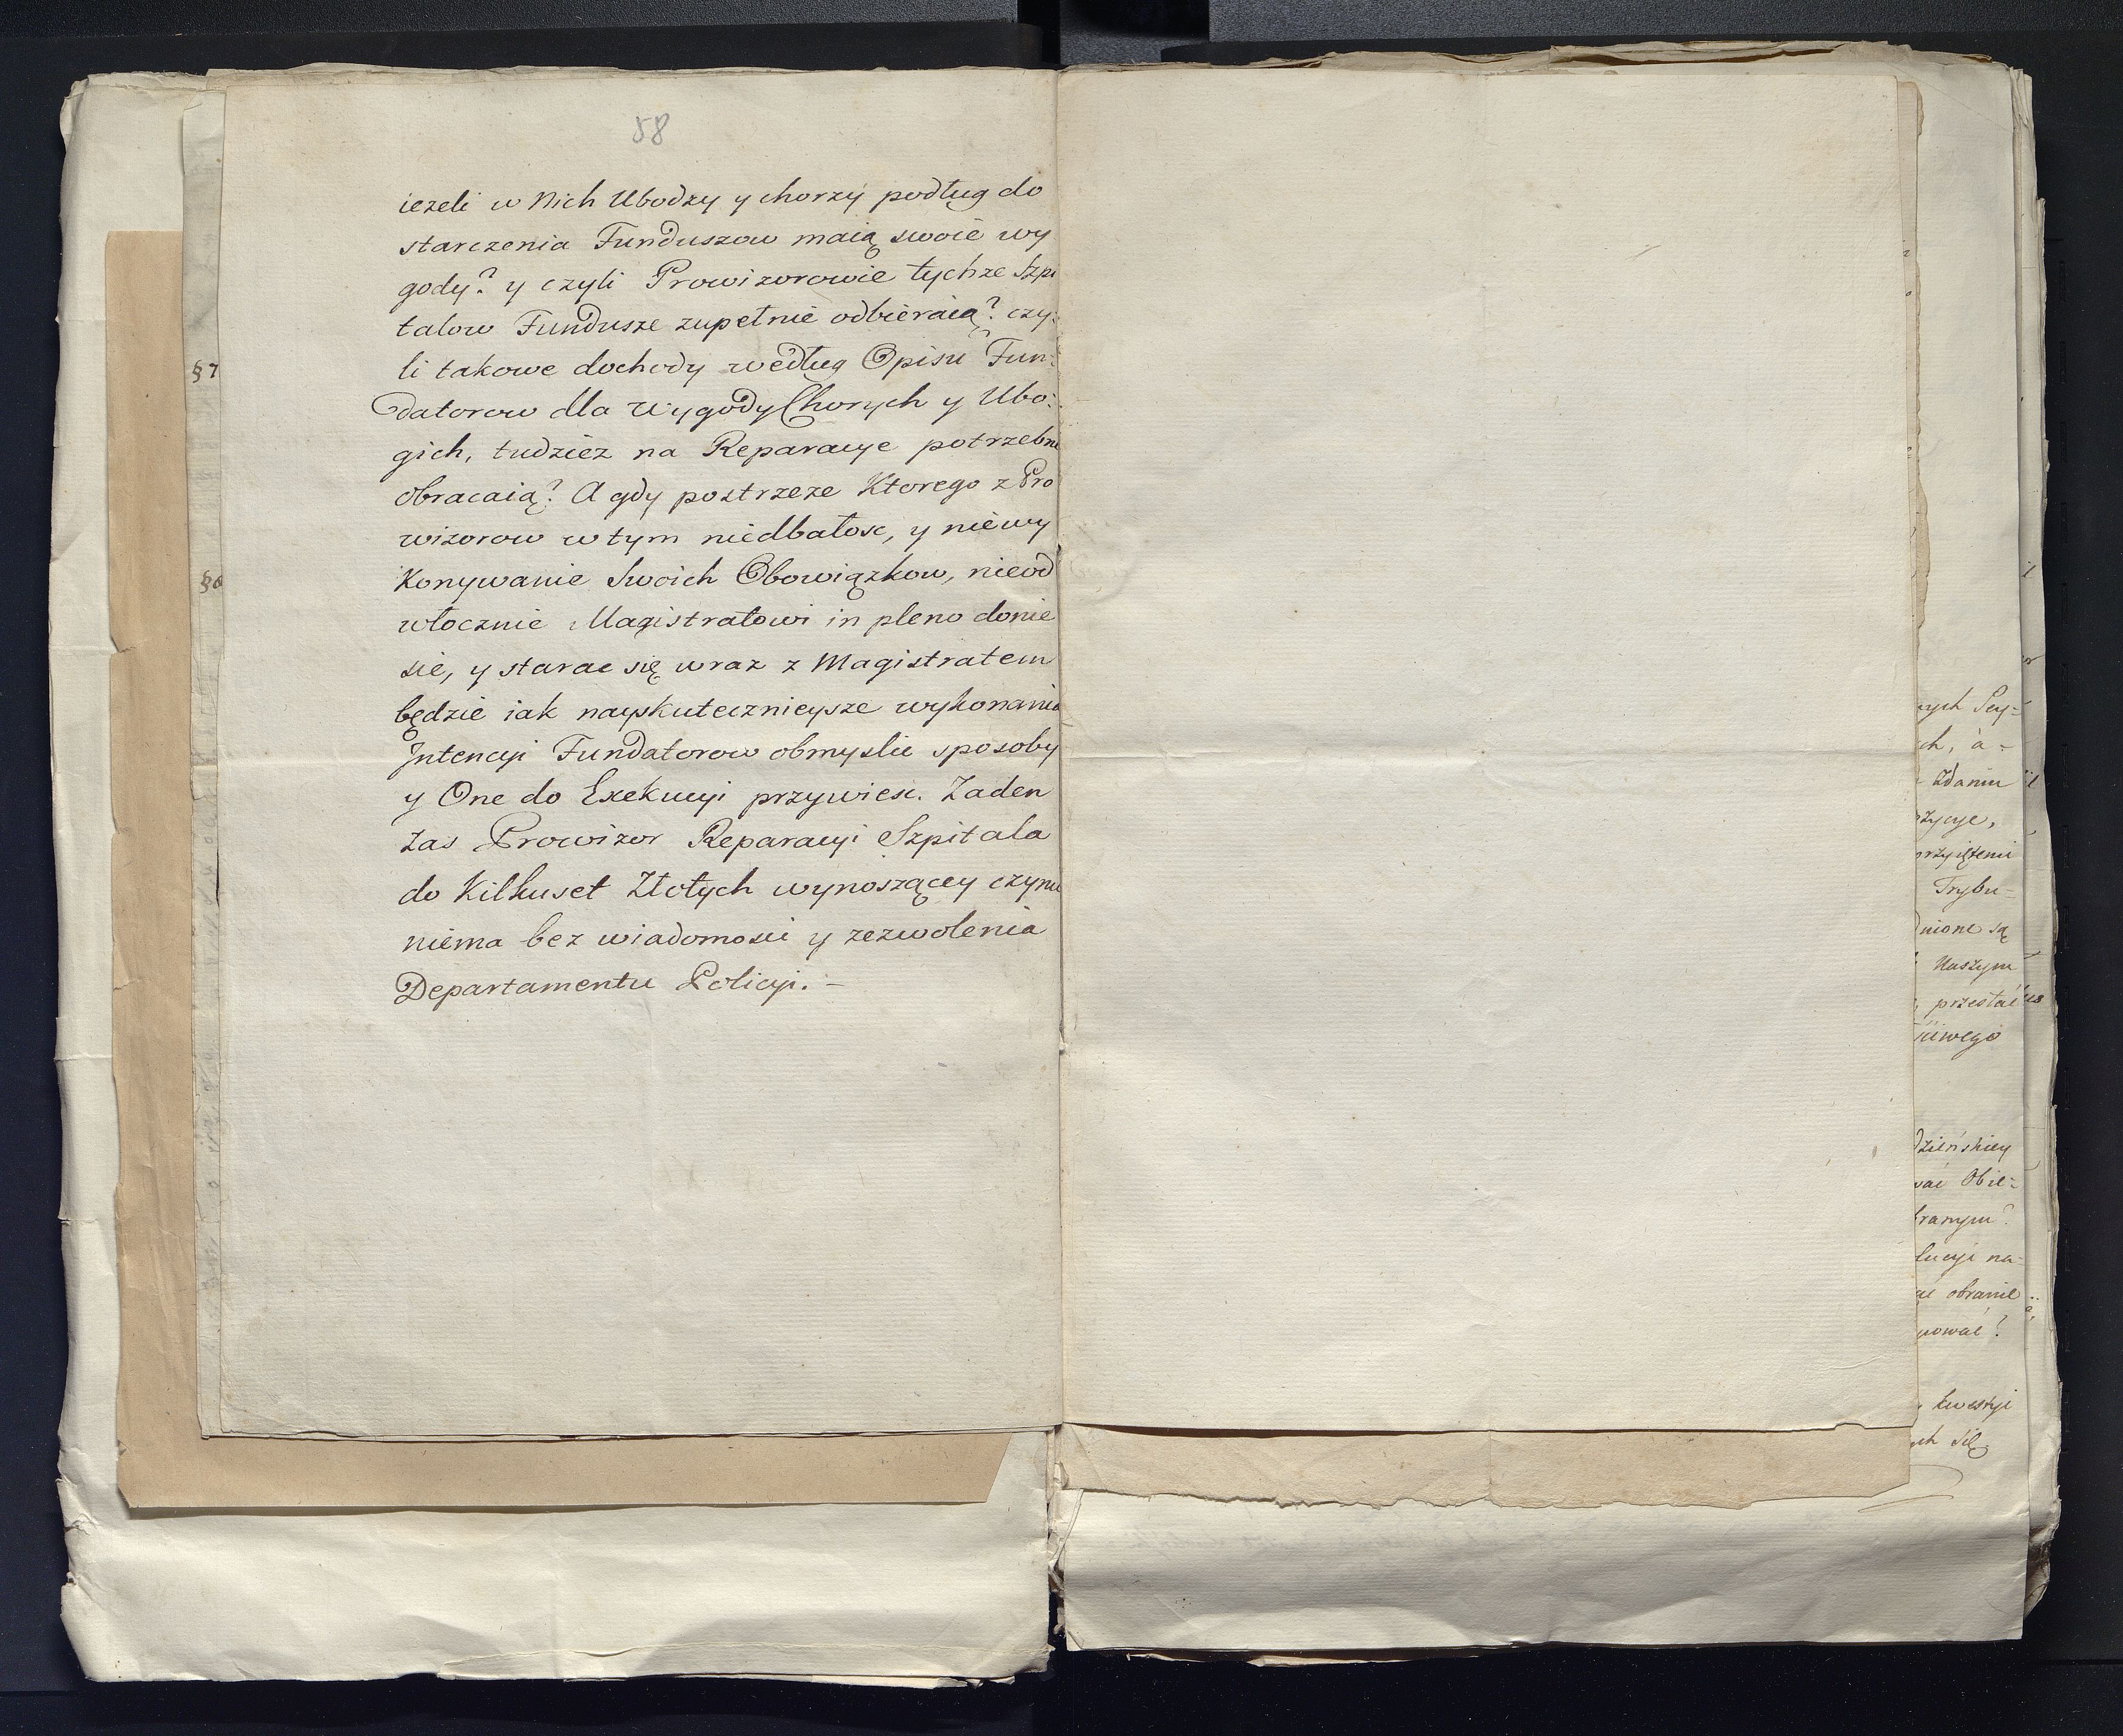 58
iezeli w Nich Ubodzy y chorzy podług do
starczenia Funduszow maią swoie wy
gody? y czyli Prowizorowie tychze Szpi
talow Fundusze zupełnie odbieraią? czy=
li takowe dochody według Opisu Fun=
datorow dla wygody Chorych y Ubo=
gich, tudziez na Reparacye potrzebne
obracaią? A gdy postrzeze Ktorego z Pro
wizorow w tym niedbałosc, y niewy
Konywanie Swoich Obowiązkow, nieod
włocznie Magistratowi in pleno donie
sie, y starac się wraz z Magistratem
będzie iak nayskutecznieysze wykonania
Intencyi Fundatorow obmyslic sposoby
y One do Exekucyi przywiesc. Zaden
zas Prowizor Reparacyi Szpitala
do Kilkuset Złotych wynoszącey czynic
niema bez wiadomosci y zezwolenia
Departamentu Policyi. –
§ 7
§ 8
zdaniu
Trybu=
są
Naszym
przestać
Obie=
na=
obranie
kwestyi
się